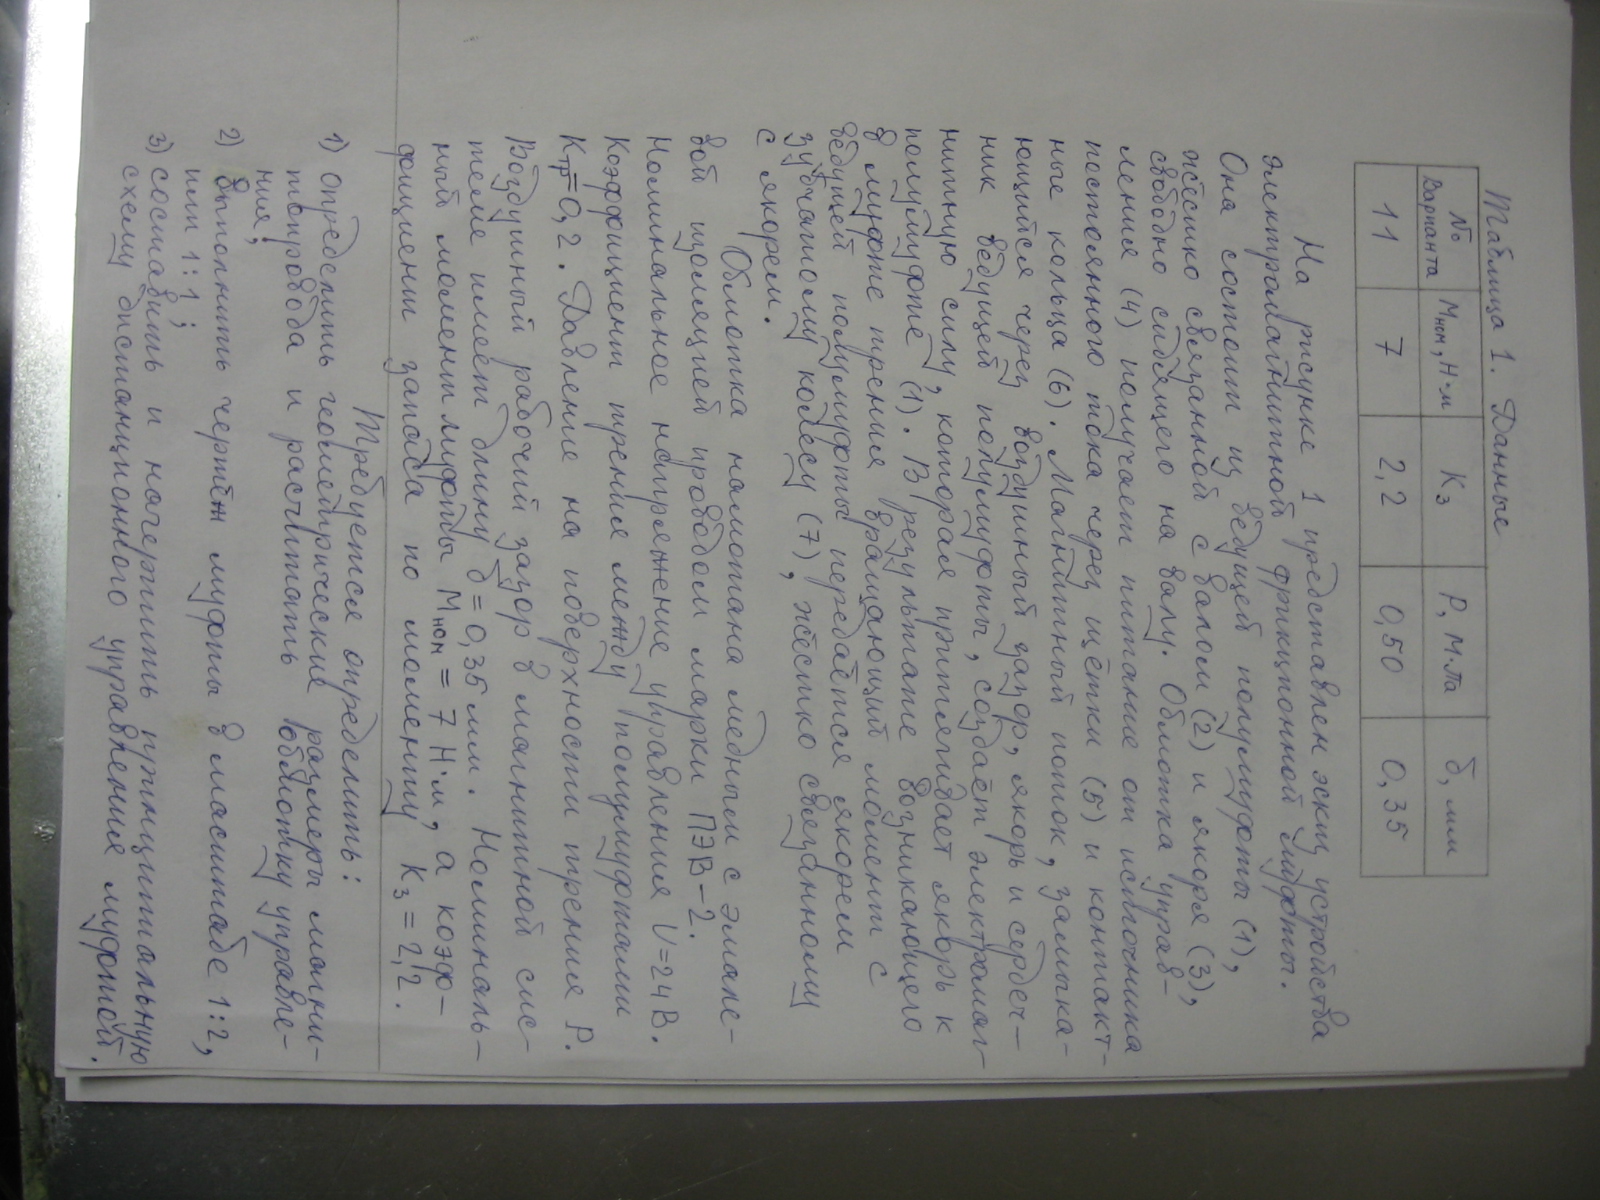 Таблица 1. Данные
№ варианта
Mном, Н·м
Kз
P, МПа
δ, мм
11
7
2,2
0,50
0,35
На рисунке 1 представлен эскиз устройства
электромагнитной фрикционной муфты.
Она состоит из ведущей полумуфты (1),
жёстко связанной с валом (2) и якоря (3),
свободно сидящего на валу. Обмотка управ-
ления (4) получает питание от источника
постоянного тока через щётки (5) и контакт-
ные кольца (6). Магнитный поток, замыка-
ющийся через воздушный зазор, якорь и сердеч-
ник ведущей полумуфты, создаёт электромаг-
нитную силу, которая притягивает якорь к
полумуфте (1). В результате возникающего
в муфте трения вращающий момент с
ведущей полумуфты передаётся якорем
зубчатому колесу (7), жёстко связанному
с якорем.
Обмотка намотана медным с эмале-
вой изоляцией проводом марки ПЭВ-2.
Номинальное напряжение управления U=24В.
Коэффициент трения между полумуфтами
Kтр=0,2. Давление на поверхности трения P.
Воздушный рабочий зазор в магнитной сис-
теме имеет длину δ=0,35мм. Номиналь-
ный момент муфты Mном = 7 Н·м, а коэф-
фициент запаса по моменту Kз = 2,2.
Требуется определить:
1) Определить геометрические размеры магни-
топровода и расчитать обмотку управле-
ния;
2) выполнить чертёж муфты в масштабе 1:2,
или 1:1;
3) составить и начертить принципиальную
схему дистанционного управления муфтой.